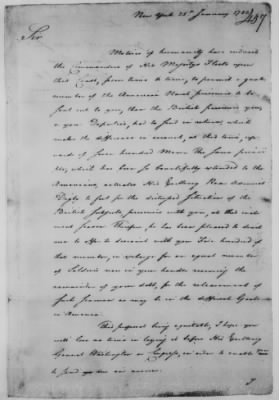 New York 25th January 1782
Sir
Motives of humanity have induced
the Commanders of His Majesty's Fleets upon
this Coast, from time to time, to permit a great
number of the American Naval prisoners to be
sent out to you, than the British prisoners you,
or your Deputies, had to send in return, which
makes the difference in account, at this time,
of four hundred Men. The same
which has been so bountifully extended to the
Americans, actuates His Excellency Rear Admiral
Digby to feel for the distressed situation of the
British Subjects, prisoners with you, at this
season. Therefore he has been pleased to direct
me to offer to account with you Four hundred of
that number, in exchange for an equal number
of Soldiers now in your hands, reserving the
remainder of your debt, for the releasement of
such Seamen as may be in the different Gaols
in America.
This proposal being equitable, I hope you
will lose no time in laying it before His Excellency
General Washington or Congress, in order to enable
to send me an answer.
I